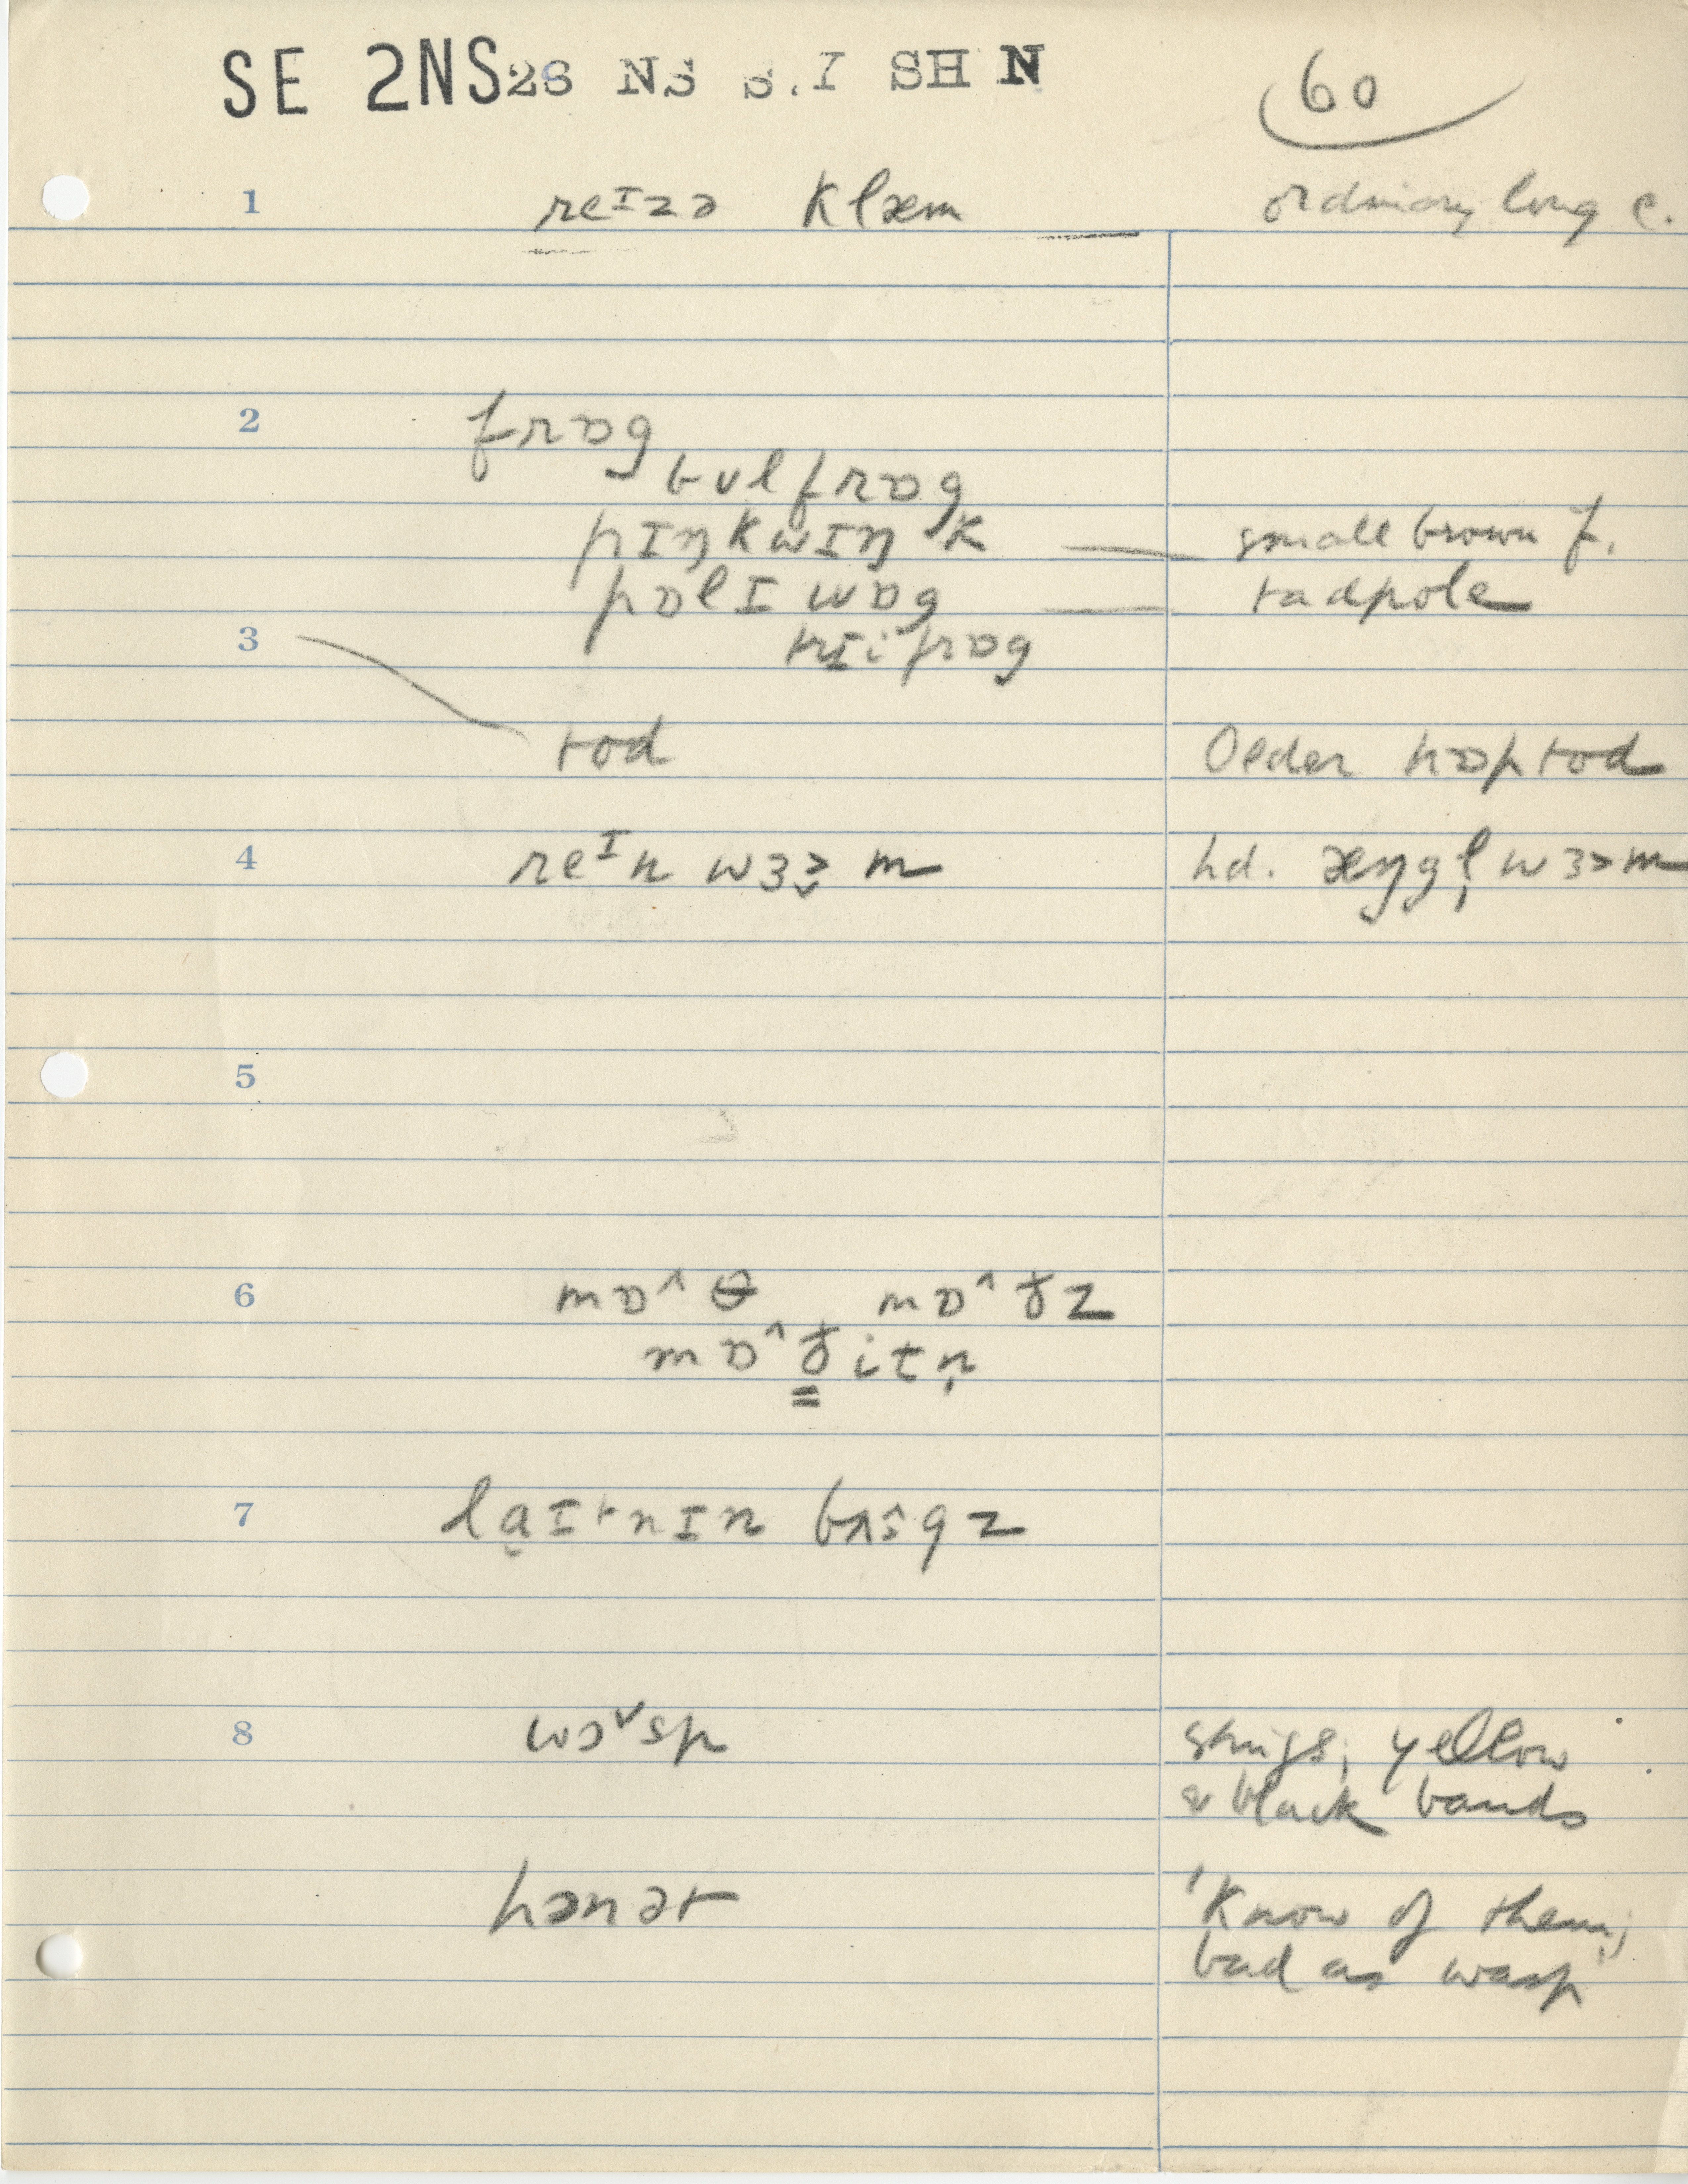 SE 2NS 28 NS S.I SH N
60
1 reᴵzə klæm ordinary long c.
2 frɒg
bʊlfrɒg
pɪŋkwɪŋk — small brown f.
pɒlɪwɒg — tadpole
3 trɪifrɒg
tod Older hɒptod
4 reᴵn wɜɚ̬m hd. æŋgl̩wɜɚm
5
6 mɒ^θ mɒ^ðz
mɒ^ð̳itn̩
7 la̬ɪtnɪn bʌ^gz
8 wɔ˅sp stings; yellow
& black bands
hɔnət 'Know of them;
bad as wasp'